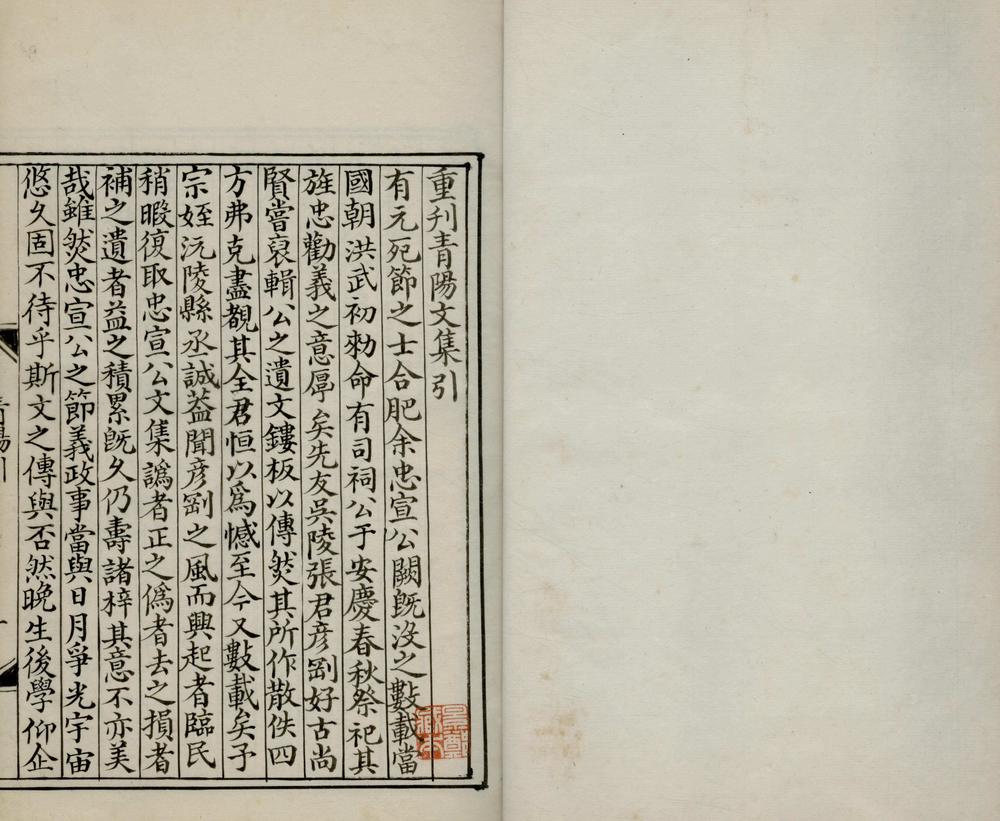 重刋青陽文集引
有元死節之士合肥余忠宣公闕旣沒之數載當
國朝洪武初勑命有司祠公于安慶春秋祭祀其
旌忠勸義之意厚矣先友吳陵張君彦剛好古尚
賢嘗裒輯公之遺文鏤板以傳然其所作散佚四
方弗克盡覩其全君恒以爲憾至今又數載矣予
宗姪沅陵縣丞誠葢聞彦剛之風而興起者臨民
稍暇復取忠宣公文集譌者正之僞者去之損者
補之遺者益之積累旣久仍壽諸梓其意不亦美
哉雖然忠宣公之節義政事當與日月爭光宇宙
悠久固不待乎斯文之傳與否然晚生後學仰企
青陽引
景鄭
藏本